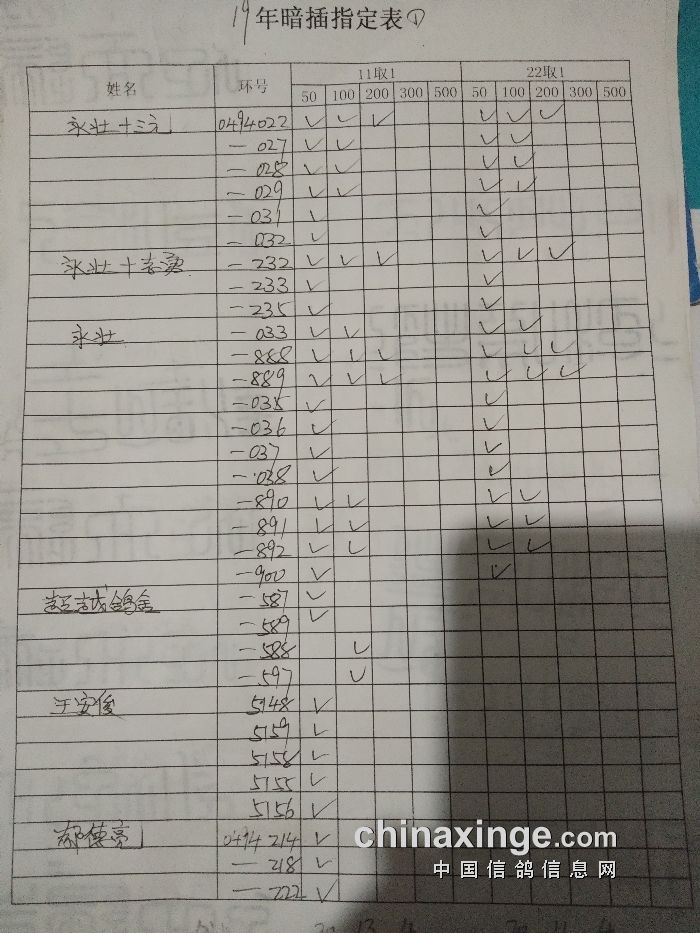 19年暗插指定表①
姓名 环号 11取1 22取1
50 100 200 300 500 50 100 200 300 500
永壮十三元 0494022 ✓ ✓ ✓ ✓ ✓ ✓
— 027 ✓ ✓ ✓ ✓
— 028 ✓ ✓ ✓ ✓
— 029 ✓ ✓ ✓ ✓
— 031 ✓ ✓
— 032 ✓ ✓
永壮十志勇 — 232 ✓ ✓ ✓ ✓ ✓ ✓
— 233 ✓ ✓
— 235 ✓ ✓
永壮 — 033 ✓ ✓ ✓ ✓
— 888 ✓ ✓ ✓ ✓ ✓ ✓
— 889 ✓ ✓ ✓ ✓ ✓ ✓
— 035 ✓ ✓
— 036 ✓ ✓
— 037 ✓ ✓
— 038 ✓ ✓
— 890 ✓ ✓ ✓ ✓
— 891 ✓ ✓ ✓ ✓
— 892 ✓ ✓ ✓ ✓
— 900 ✓ ✓
超越鸽舍 — 587 ✓
— 589 ✓
— 588 ✓
— 597 ✓
于安俊 5148 ✓
5159 ✓
5158 ✓
5155 ✓
5156 ✓
郝德亮 0494 214 ✓
— 218 ✓
— 222 ✓
chinaxinge.com
中国信鸽信息网